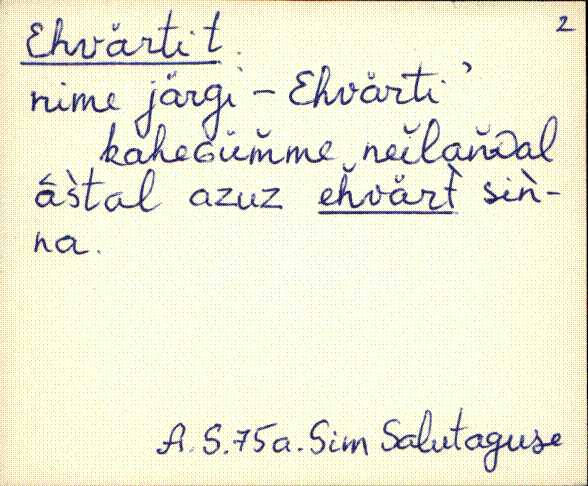 2
Ehvärti t.
nime järgi – Ehvärti'
kaheɢüm̆me neĭlan̆dal
âs̀tal azuz eh̆värt̀ sin̆-
na.
A.S. 75a. Sim Salutaguse